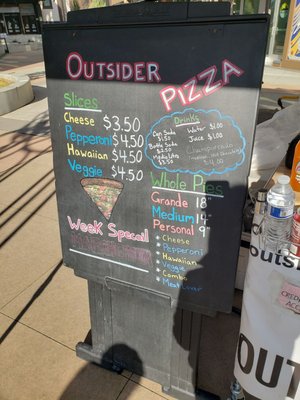 OUTSIDER
PIZZA
Slices
Cheese $3.50
Pepperoni $4.50
Hawaiian $4.50
Veggie $4.50
Drinks
Can Soda
1.50
Water $1.00
Juice $1.00
Bottle Soda
$2.50
$4.00
Whole Pies
Grande 18"
Medium 14"
Personal 9"
* Cheese
* Pepperoni
* Hawaiian
* Veggie
* Combo
* Meat Lover
Week Speceil
OUT